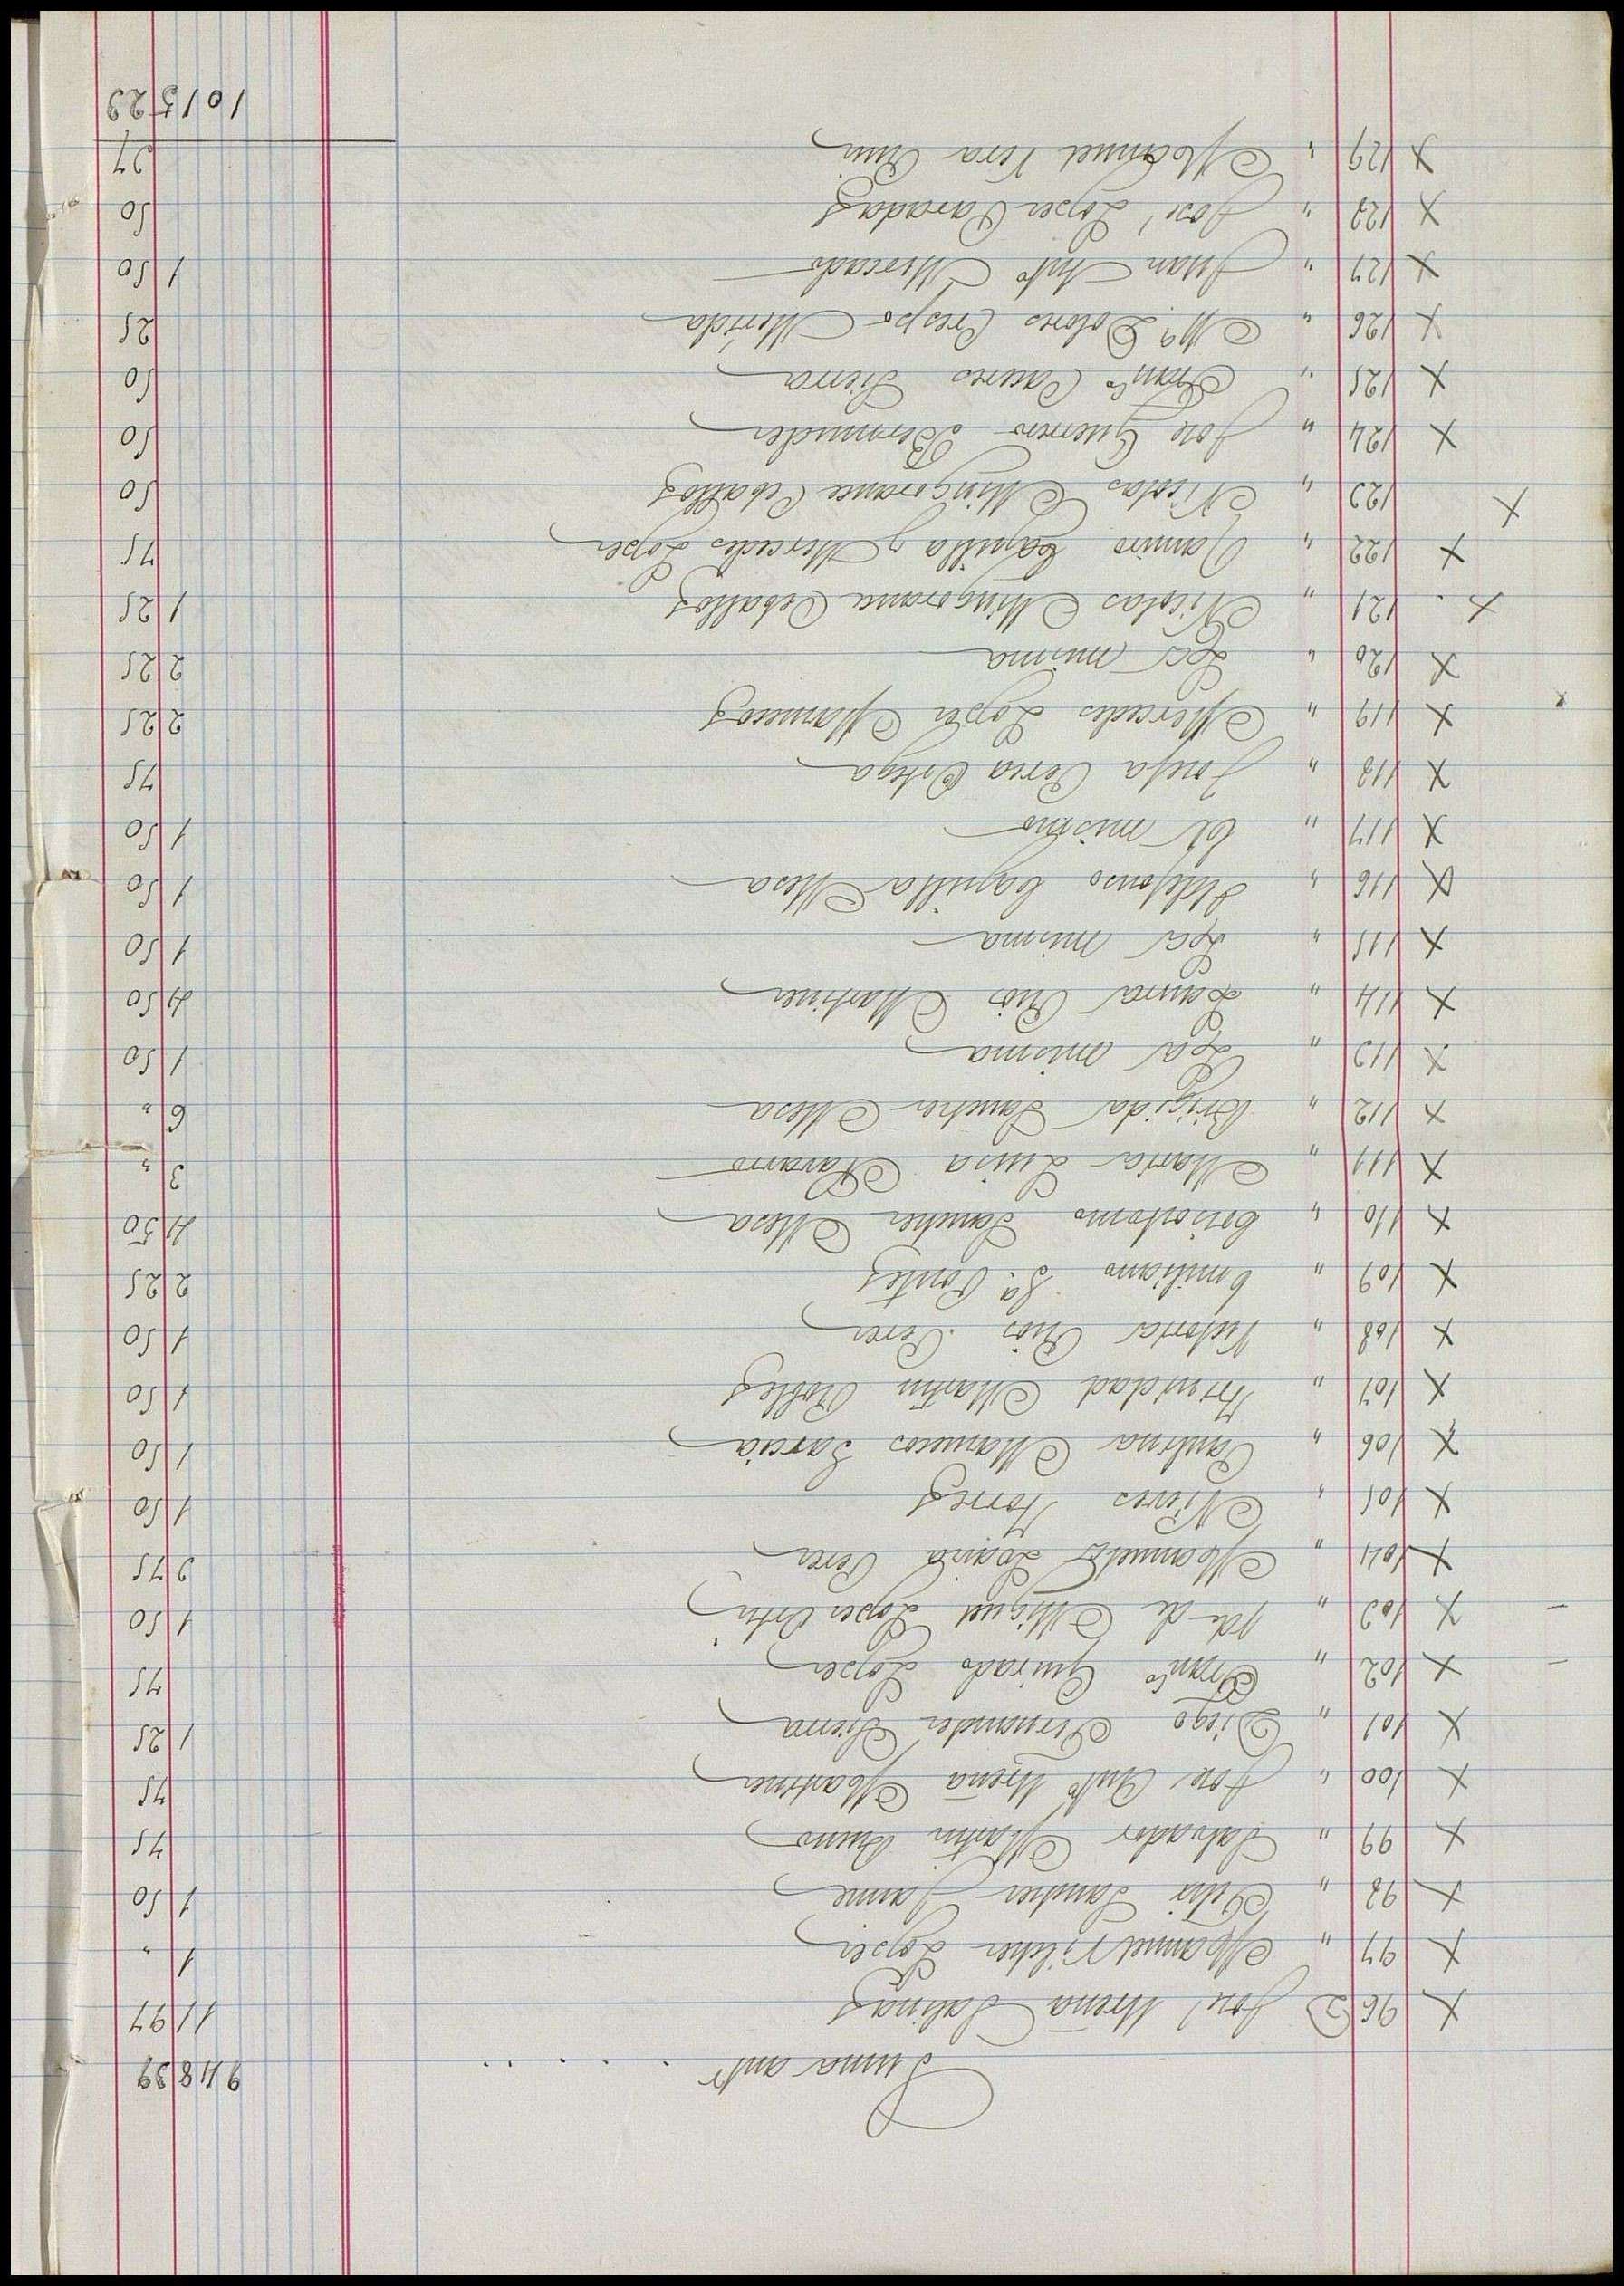 Suma antr ........ 948 39
X 96 D José Ureña Salinas 11 97
X 97 " Manuel Vilchez Lopez 1 "
X 98 " Felix Sanchez Jaime 1 50
X 99 " Salvador Martin Bueno 75
X 100 " Jose Antº Ureña Martinez 75
X 101 " Diego Fernandez Sierra 1 25
X 102 " Franco Guirado Lopez 75
X 103 " Vda de Miguel Lopez Ortiz 1 50
X 104 " Manuela Perez 3 75
X 105 " Nieves Torres 1 50
X 106 " Paulina Mamecos Garcia 1 50
X 107 " Trinidad Martin Robles 1 50
X 108 " Victoria Rios Perez 1 50
X 109 " Emiliano Gª Pontes 2 25
X 110 " Crisostomo Sanchez Mesa 4 50
X 111 " Maria Luisa Navarro 3 "
X 112 " Brigida Sanchez Mesa 6 "
X 113 " La misma 1 50
X 114 " Laura Rios Martinez 4 50
X 115 " La misma 1 50
X 116 " Ildefonso Capilla Mesa 1 50
X 117 " El mismo 1 50
X 118 " Josefa Perea Ortega 75
X 119 " Mercedes Lopez Mamecos 2 25
X 120 " La misma 2 25
X 121 " Nicolas Mingorance Ceballos 1 25
X 122 " Ramiro Capilla y Mercedes Lopez 75
X 123 " Nicolas Mingorance Ceballos 50
X 124 " Jose Guerrero Bermudez 50
X 125 " Franco Caceres Sierra 50
X 126 " Mª Dolores Crespo Merida 25
X 127 " Juan Antº Mercado 1 50
X 128 " José Lopez Paradas 50
X 129 " Manuel Vera Ruiz 37
1015 23